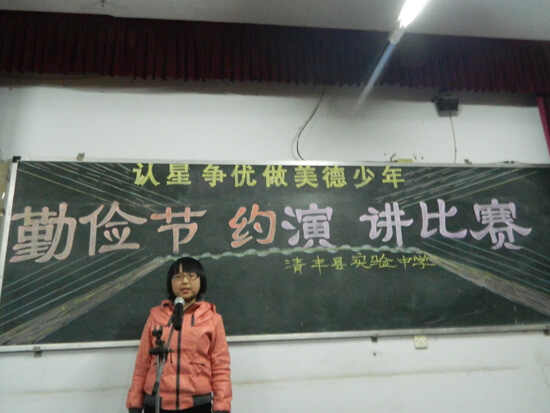 认星争优做美德少年
勤俭节约演讲比赛
清丰县实验中学